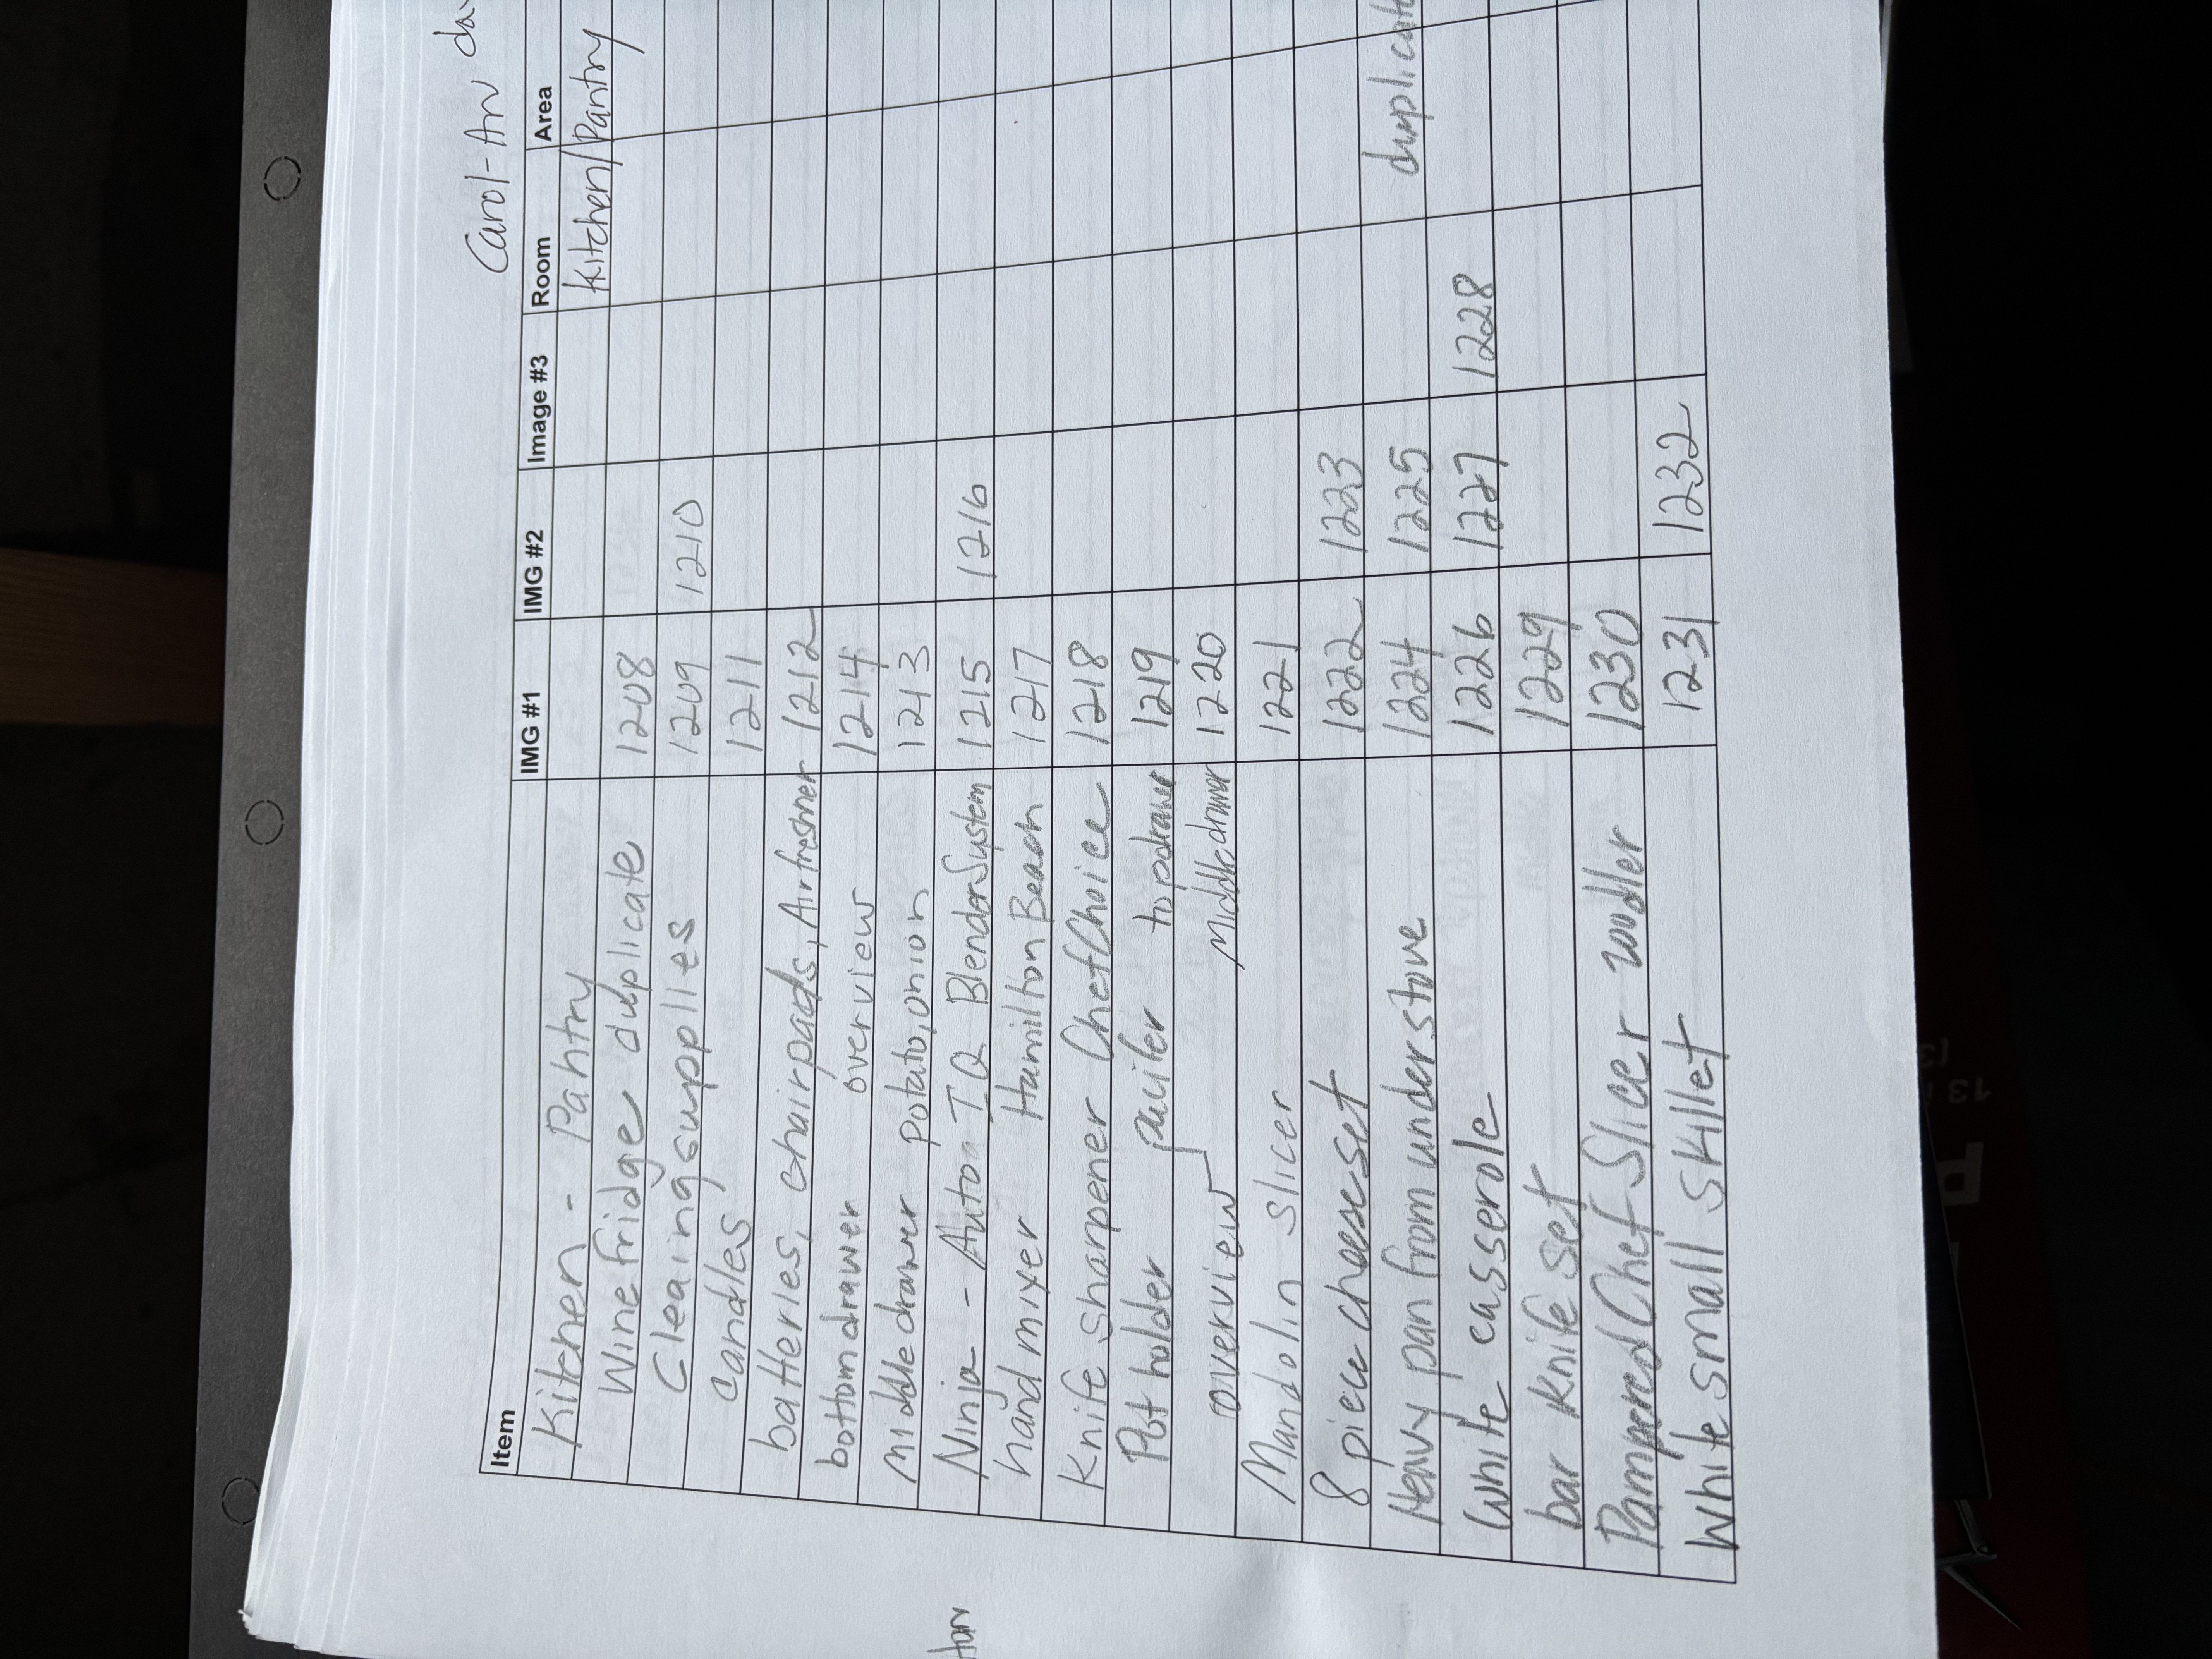 Carol-Ann
Item IMG #1 IMG #2 Image #3 Room Area
Kitchen - Pantry Kitchen/Pantry
Wine fridge duplicate 1208
Cleaing supplies 1209 1210
Candles 1211
batteries, chair pads, Air freshner 1212
bottom drawer overview 1214
middle drawer potato, onion 1213
Ninja - Auto IQ Blender System 1215 1216
hand mixer Hamilton Beach 1217
Knife sharpener Chef Choice 1218
Pot holder top drawer 1219
overview Middle drawer 1220
Mandolin slicer 1221
8 piece cheese set 1222 1223
Heavy pan from under stove 1224 1225 duplicate
White casserole 1226 1227 1228
bar knife set 1229
Pampered Chef Slicer 1230
White small skillet 1231 1232